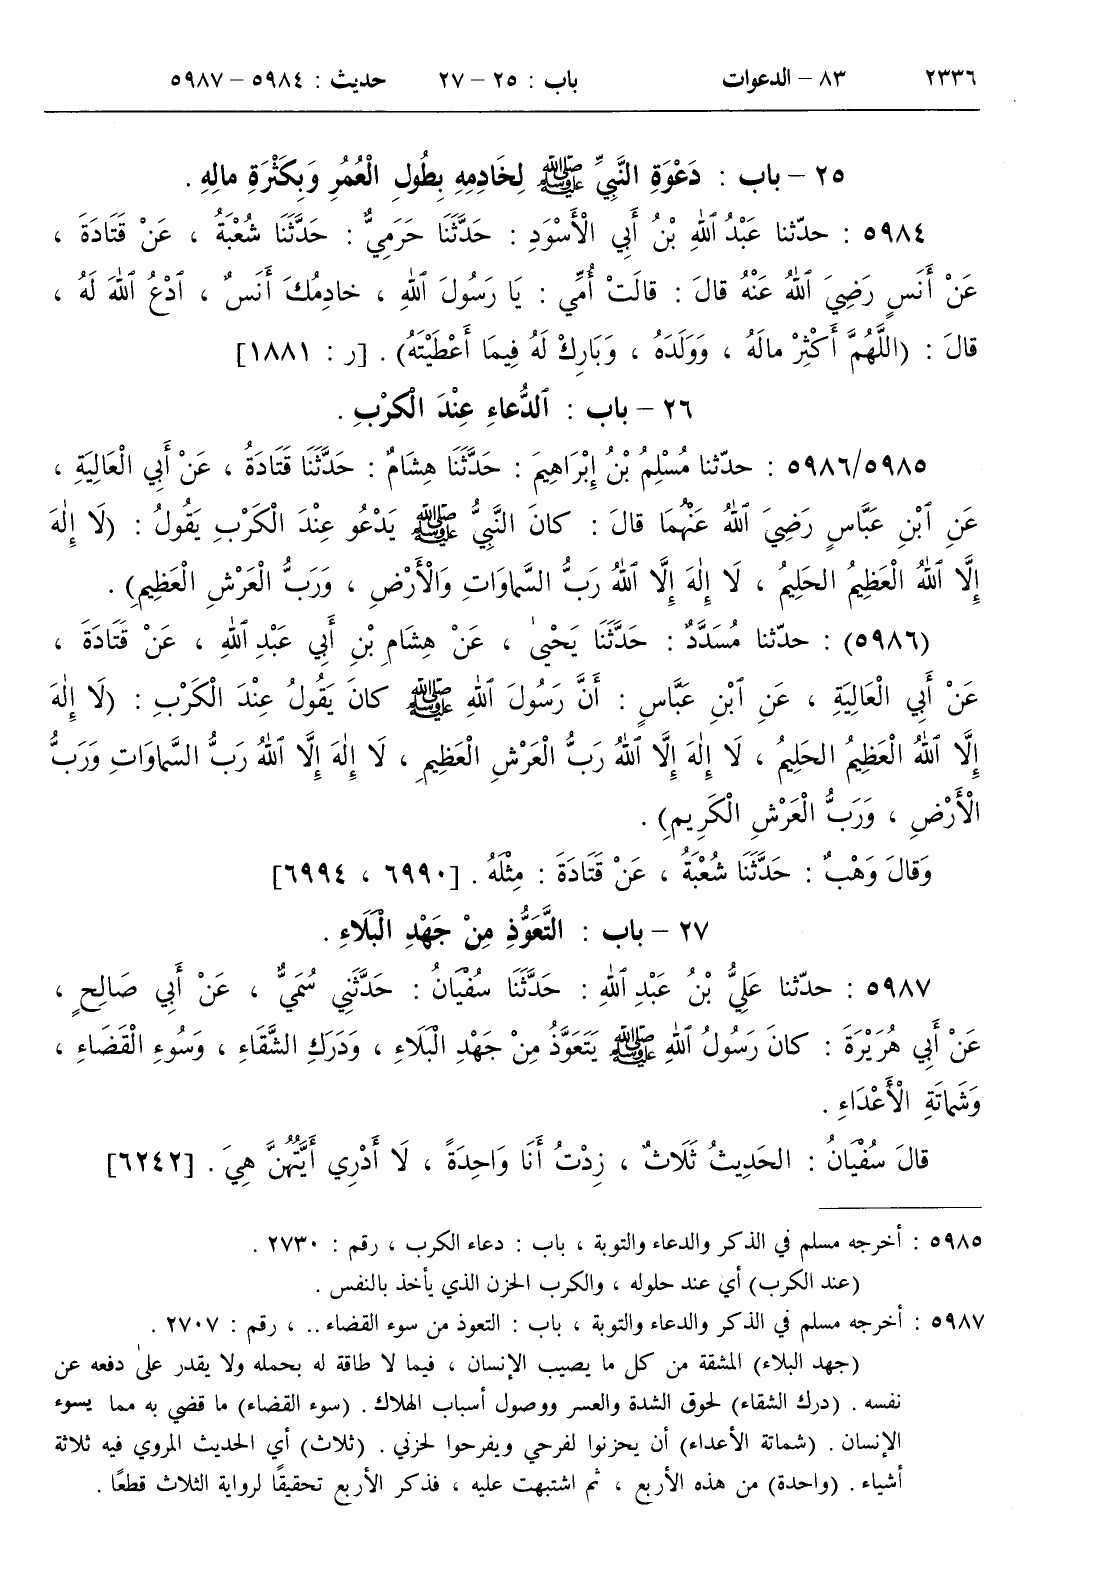 ٢٣٣٦ ٨٣ – الدعوات باب : ٢٥ – ٢٧ حديث : ٥٩٨٤ – ٥٩٨٧
٢٥ – باب : دَعْوَةِ النَّبِيِّ ﷺ لِخَادِمِهِ بِطُولِ الْعُمُرِ وَبِكَثْرَةِ مالِهِ .
٥٩٨٤ : حدّثنا عَبْدُ ٱللهِ بْنُ أَبِي الْأَسْوَدِ : حَدَّثَنَا حَرَمِيٌّ : حَدَّثَنَا شُعْبَةُ ، عَنْ قَتَادَةَ ،
عَنْ أَنَسٍ رَضِيَ ٱللهُ عَنْهُ قالَ : قالَتْ أُمِّي : يَا رَسُولَ ٱللهِ ، خادِمُكَ أَنَسٌ ، ٱدْعُ ٱللهَ لَهُ ،
قالَ : (اللَّهُمَّ أَكْثِرْ مالَهُ ، وَوَلَدَهُ ، وَبَارِكْ لَهُ فِيمَا أَعْطَيْتَهُ) . [ر : ١٨٨١]
٢٦ – باب : ٱلدُّعاءِ عِنْدَ الْكَرْبِ .
٥٩٨٦/٥٩٨٥ : حدّثنا مُسْلِمُ بْنُ إِبْرَاهِيمَ : حَدَّثَنَا هِشَامٌ : حَدَّثَنَا قَتَادَةُ ، عَنْ أَبِي الْعَالِيَةِ ،
عَنِ ٱبْنِ عَبَّاسٍ رَضِيَ ٱللهُ عَنْهُمَا قالَ : كانَ النَّبِيُّ ﷺ يَدْعُو عِنْدَ الْكَرْبِ يَقُولُ : (لَا إِلٰهَ
إِلَّا ٱللهُ الْعَظِيمُ الحَلِيمُ ، لَا إِلٰهَ إِلَّا ٱللهُ رَبُّ السَّماوَاتِ وَالْأَرْضِ ، وَرَبُّ الْعَرْشِ الْعَظِيمِ) .
(٥٩٨٦) : حدّثنا مُسَدَّدٌ : حَدَّثَنَا يَحْيىٰ ، عَنْ هِشَامِ بْنِ أَبِي عَبْدِ ٱللهِ ، عَنْ قَتَادَةَ ،
عَنْ أَبِي الْعَالِيَةِ ، عَنِ ٱبْنِ عَبَّاسٍ : أَنَّ رَسُولَ ٱللهِ ﷺ كانَ يَقُولُ عِنْدَ الْكَرْبِ : (لَا إِلٰهَ
إِلَّا ٱللهُ الْعَظِيمُ الحَلِيمُ ، لَا إِلٰهَ إِلَّا ٱللهُ رَبُّ الْعَرْشِ الْعَظِيمِ ، لَا إِلٰهَ إِلَّا ٱللهُ رَبُّ السَّماوَاتِ وَرَبُّ
الْأَرْضِ ، وَرَبُّ الْعَرْشِ الْكَرِيمِ) .
وَقالَ وَهْبٌ : حَدَّثَنَا شُعْبَةُ ، عَنْ قَتَادَةَ : مِثْلَهُ . [٦٩٩٠ ، ٦٩٩٤]
٢٧ – باب : التَّعَوُّذِ مِنْ جَهْدِ الْبَلَاءِ .
٥٩٨٧ : حدّثنا عَلِيُّ بْنُ عَبْدِ ٱللهِ : حَدَّثَنَا سُفْيَانُ : حَدَّثَنِي سُمَيٌّ ، عَنْ أَبِي صَالِحٍ ،
عَنْ أَبِي هُرَيْرَةَ : كانَ رَسُولُ ٱللهِ ﷺ يَتَعَوَّذُ مِنْ جَهْدِ الْبَلَاءِ ، وَدَرَكِ الشَّقَاءِ ، وَسُوءِ الْقَضَاءِ ،
وَشَماتَةِ الْأَعْدَاءِ .
قالَ سُفْيَانُ : الحَدِيثُ ثَلَاثٌ ، زِدْتُ أَنَا وَاحِدَةً ، لَا أَدْرِي أَيَّتُهُنَّ هِيَ . [٦٢٤٢]
٥٩٨٥ : أخرجه مسلم في الذكر والدعاء والتوبة ، باب : دعاء الكرب ، رقم : ٢٧٣٠ .
(عند الكرب) أي عند حلوله ، والكرب الحزن الذي يأخذ بالنفس .
٥٩٨٧ : أخرجه مسلم في الذكر والدعاء والتوبة ، باب : التعوذ من سوء القضاء .. ، رقم : ٢٧٠٧ .
(جهد البلاء) المشقة من كل ما يصيب الإنسان ، فيما لا طاقة له بحمله ولا يقدر علىٰ دفعه عن
نفسه . (درك الشقاء) لحوق الشدة والعسر ووصول أسباب الهلاك . (سوء القضاء) ما قضي به مما يسوء
الإنسان . (شماتة الأعداء) أن يحزنوا لفرحي ويفرحوا لحزني . (ثلاث) أي الحديث المروي فيه ثلاثة
أشياء . (واحدة) من هذه الأربع ، ثم اشتبهت عليه ، فذكر الأربع تحقيقًا لرواية الثلاث قطعًا .